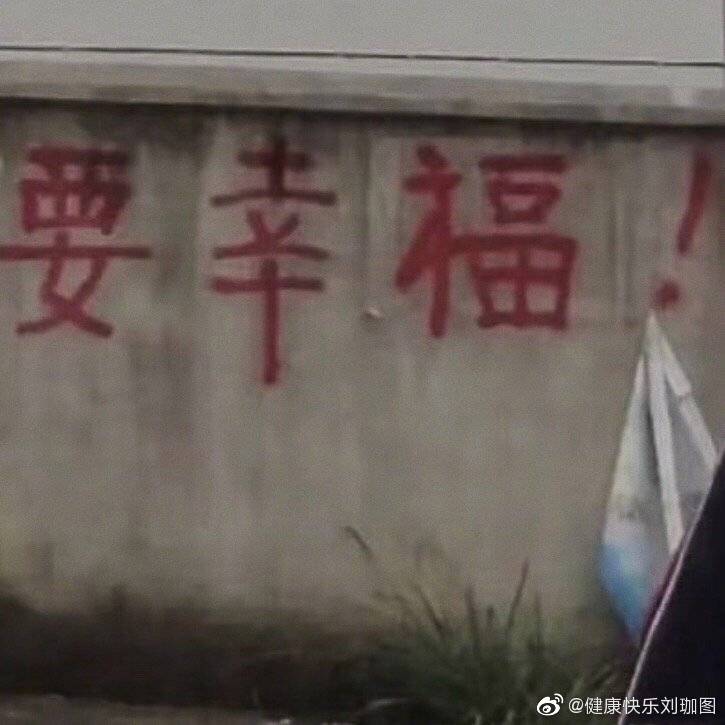 要幸福!
@健康快乐刘珈图